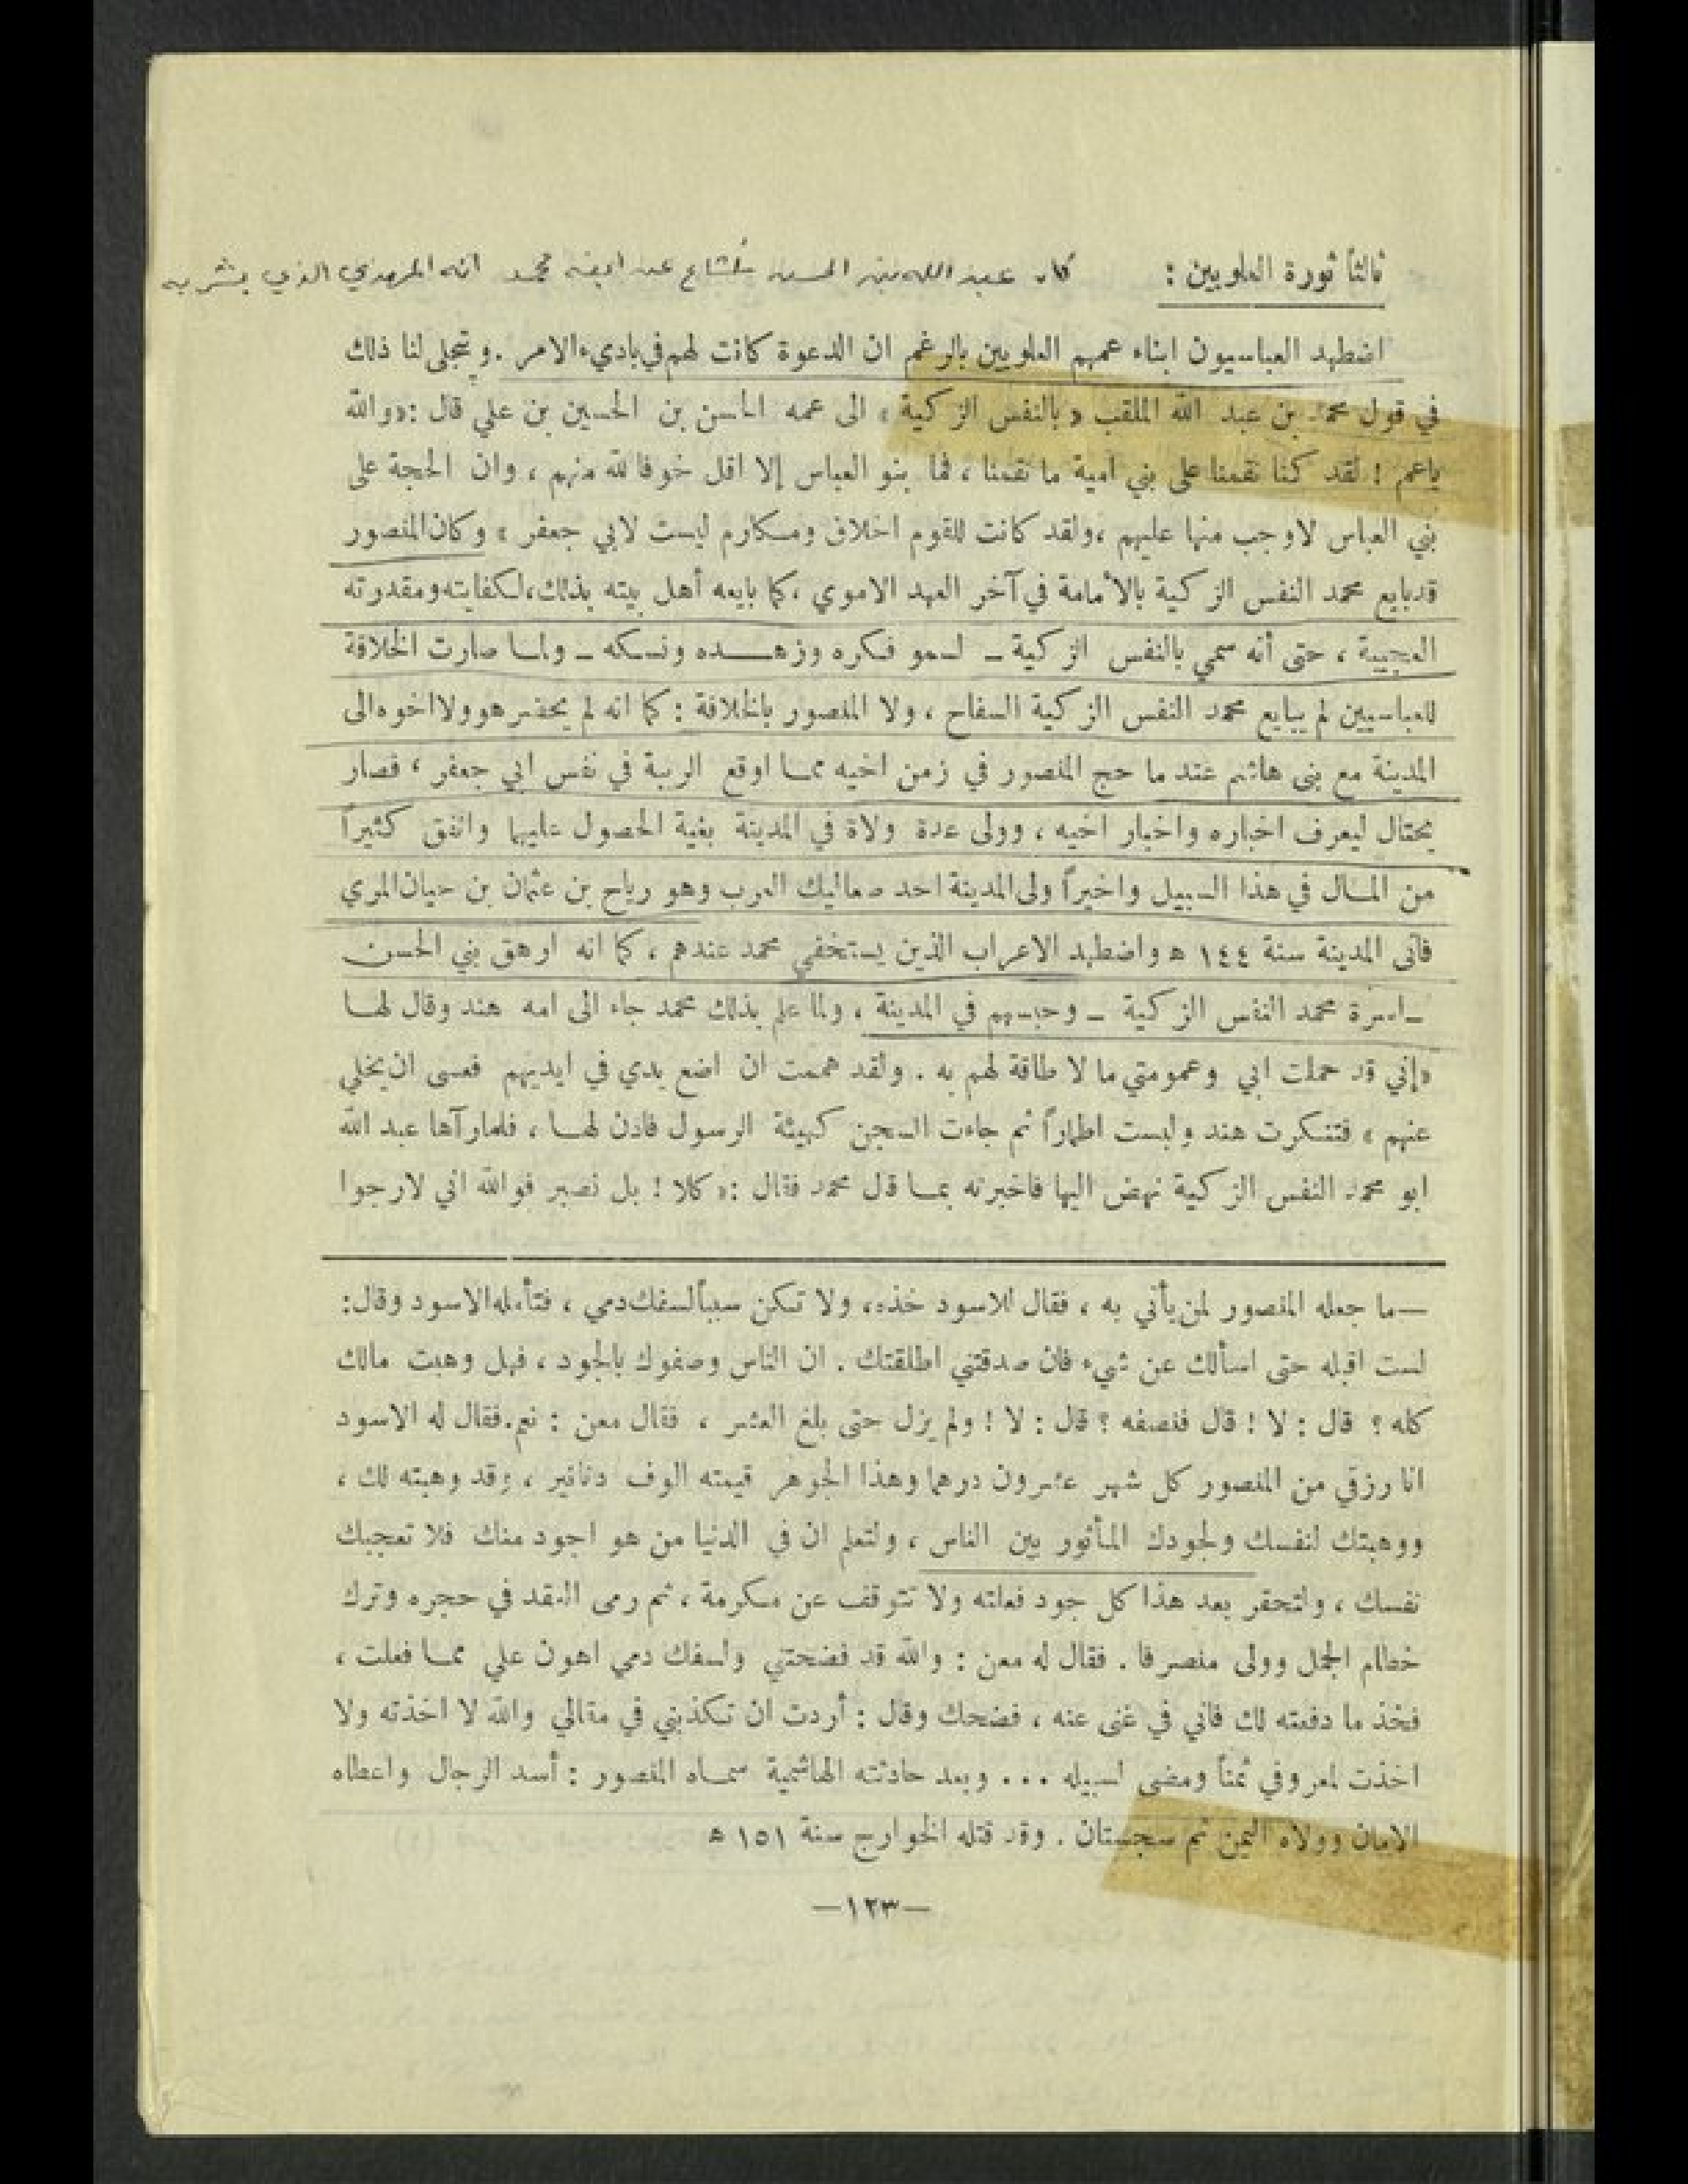 ثالثاً ثورة العلويين : كان عبد الله بن الحسن يُشاع عن ابنه محمد انه المهدي الذي بشر به
اضطهد العباسيون ابناء عمهم العلويين بالرغم ان الدعوة كانت لهم في بادىء الامر . وتتجلى لنا ذلك
في قول محمد بن عبد الله الملقب « بالنفس الزكية » الى عمه الحسن بن الحسين بن علي قال : « والله
ياعم ! لقد كنا نقمنا على بني امية ما نقمنا ، فما بنو العباس إلا اقل خوفا لله منهم ، وان الحجة على
بني العباس لاوجب منها عليهم ، ولقد كانت للقوم اخلاق ومكارم ليست لابي جعفر » وكان المنصور
قد بايع محمد النفس الزكية بالأمامة في آخر العهد الاموي ، كما بايعه أهل بيته بذلك ، لكفايته ومقدرته
العجيبة ، حتى أنه سمي بالنفس الزكية ـ لسمو فكره وزهـــده ونسكه ـ ولمـا صارت الخلافة
للعباسيين لم يبايع محمد النفس الزكية السفاح ، ولا المنصور بالخلافة : كما انه لم يحضر هو ولا اخوه الى
المدينة مع بنى هاشم عند ما حج المنصور في زمن اخيه ممـا اوقع الريبة في نفس ابي جعفر ، فصار
يحتال ليعرف اخباره واخبار اخيه ، وولى عدة ولاة في المدينة بغية الحصول عليهما وانفق كثيراً
من المـال في هذا السبيل واخيراً ولى المدينة احد صعاليك العرب وهو رياح بن عثمان بن حيان المري
فأتى المدينة سنة ١٤٤ ه واضطهد الاعراب الذين يستخفي محمد عندهم ، كما انه ارهق بني الحسن
ـ اسرة محمد النفس الزكية ـ وحبسهم في المدينة ، ولما علم بذلك محمد جاء الى امه هند وقال لهـا
« إني قد حملت ابي وعمومتي ما لا طاقة لهم به . ولقد هممت ان اضع يدي في ايديهم فعسى ان يخلي
عنهم » فتنكرت هند ولبست اطماراً ثم جاءت السجن كهيئة الرسول فاذن لهـا ، فلما رآها عبد الله
ابو محمد النفس الزكية نهض اليها فاخبرته بمـا قال محمد فقال : « كلا ! بل نصبر فوالله اني لارجوا
ــ ما جعله المنصور لمن يأتي به ، فقال للاسود خذه ، ولا تكن سبباً لسفك دمي ، فتأمله الاسود وقال :
لست اقبله حتى اسألك عن شيء فان صدقتني اطلقتك . ان الناس وصفوك بالجود ، فهل وهبت مالك
كله ؟ قال : لا ! قال فنصفه ؟ قال : لا ! ولم يزل حتى بلغ العشر ، فقال معن : نعم . فقال له الاسود
انا رزقي من المنصور كل شهر عشرون درهما وهذا الجوهر قيمته الوف دنانير ، وقد وهبته لك ،
ووهبتك لنفسك ولجودك المأثور بين الناس ، ولتعلم ان في الدنيا من هو اجود منك فلا تعجبك
نفسك ، ولتحقر بعد هذا كل جود فعلته ولا تتوقف عن مكرمة ، ثم رمى العقد في حجره وترك
خطام الجمل وولى منصرفا . فقال له معن : والله قد فضحتني ولسفك دمي اهون علي ممـا فعلت ،
فخذ ما دفعته لك فاني في غنى عنه ، فضحك وقال : أردت ان تكذبني في مقالي والله لا اخذته ولا
اخذت لمعروفي ثمناً ومضى لسبيله ... وبعد حادثته الهاشمية سمـاه المنصور : أسد الرجال واعطاه
الامان وولاه اليمن ثم سجستان . وقد قتله الخوارج سنة ١٥١ ه
ــ ١٢٣ ــ